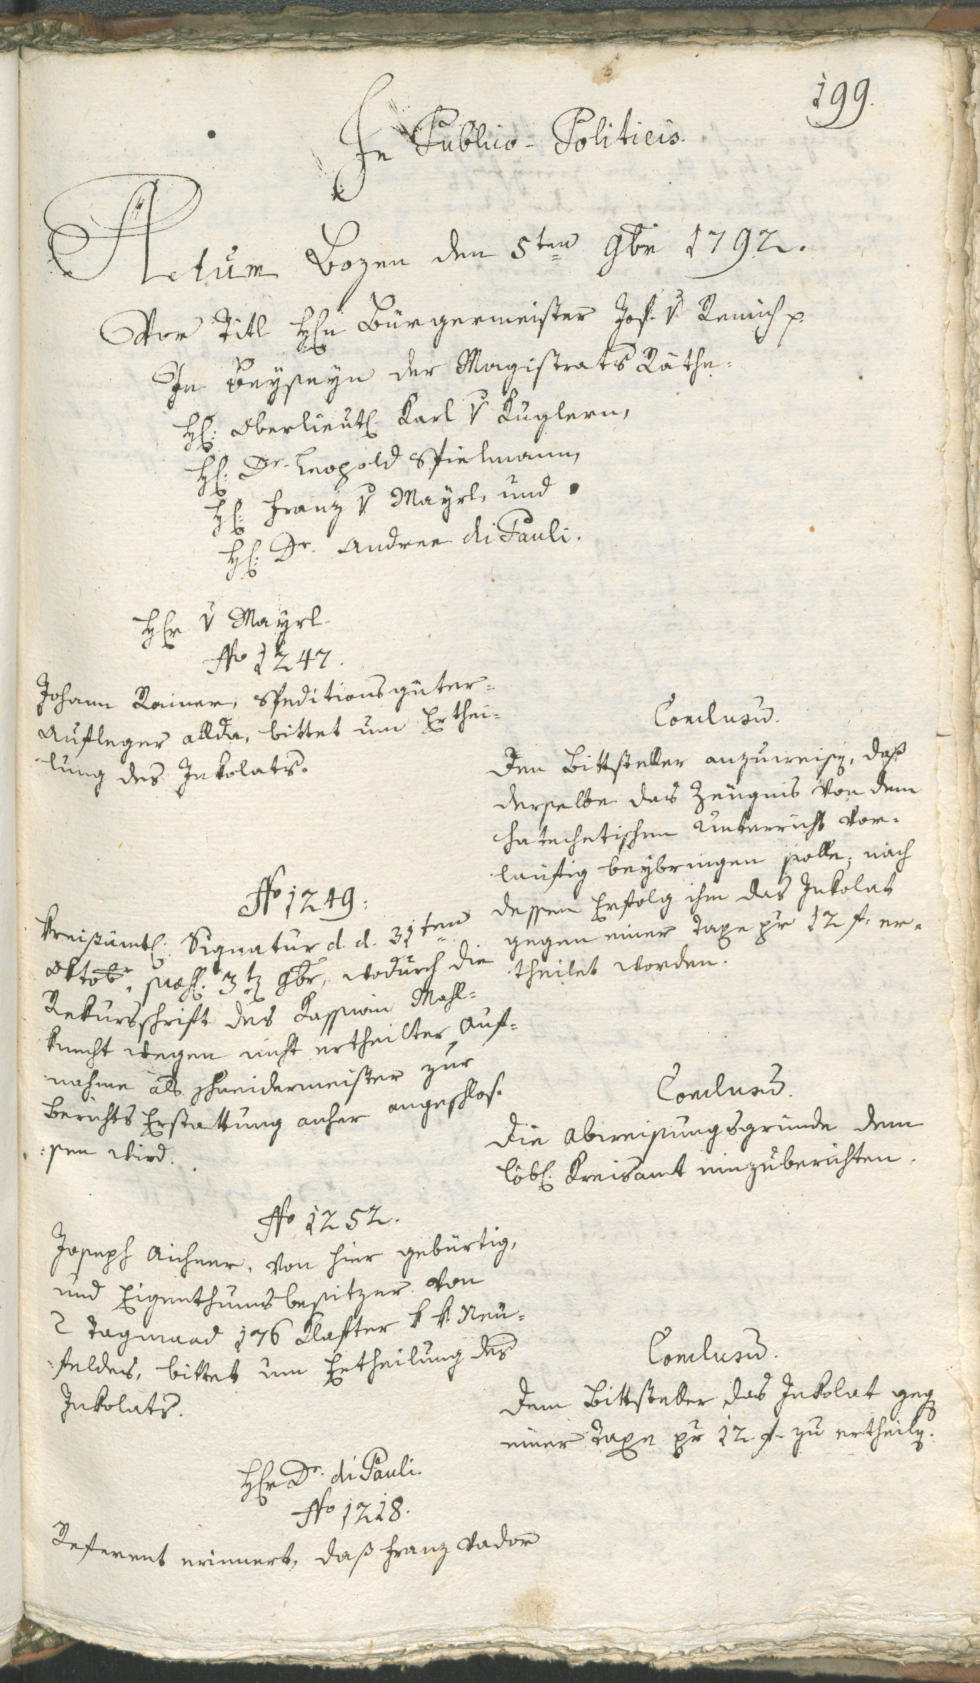 199.
In Publico-Politicis.
Actum Bozen den 5ten 9br 1792.
Vor Titl Hln Bürgermeister Jos. v Remich p.
In Beÿseÿn der Magistrats Räthe.
H: Oberlieut: Karl v Kuglern,
H: Dr. Leopold Spielmann,
H: Franz v Maÿrl, und
H: Dr. Andree di Pauli.
Hr v Maÿrl
No 1247.
Johann Rainer, Speditionsgüter-
Aufleger allda, bittet um Erthei-
lung des Inkolats.
Conclusu.
Den Bittsteller anzuweisen, daß
derselbe das Zeugnis von dem
chatechetischen Unterricht vor-
läufig beÿbringen solle; nach
dessen Erfolg ihm das Inkolat
gegen einer Taxe pr 12 f. er-
theilet worden.
No 1249.
Kreisämtl: Signatur d. d. 31ten
Oktobr, 3t 9br, wodurch die
Rekursschrift des Kassian Mahl-
knecht wegen nicht ertheilter Auf-
nahme als Schneidermeister zur
Berichts Erstattung anher angeschlos-
sen wird.
Conclusu.
Die Abweisungsgründe dem
löbl: Kreisamt einzuberichten.
No 1252.
Joseph Aichner, von hier gebürtig,
und Eigenthumsbesitzer von
2 Tagmaad 176 Klafter k k Neu-
feldes, bittet um Ertheilung des
Inkolats.
Conclusu.
Dem Bittsteller das Inkolat geg
einer Taxe pr 12 f. zu ertheiln.
Hr Dr. di Pauli.
No 1218.
Referent erinnert, daß Franz Vador